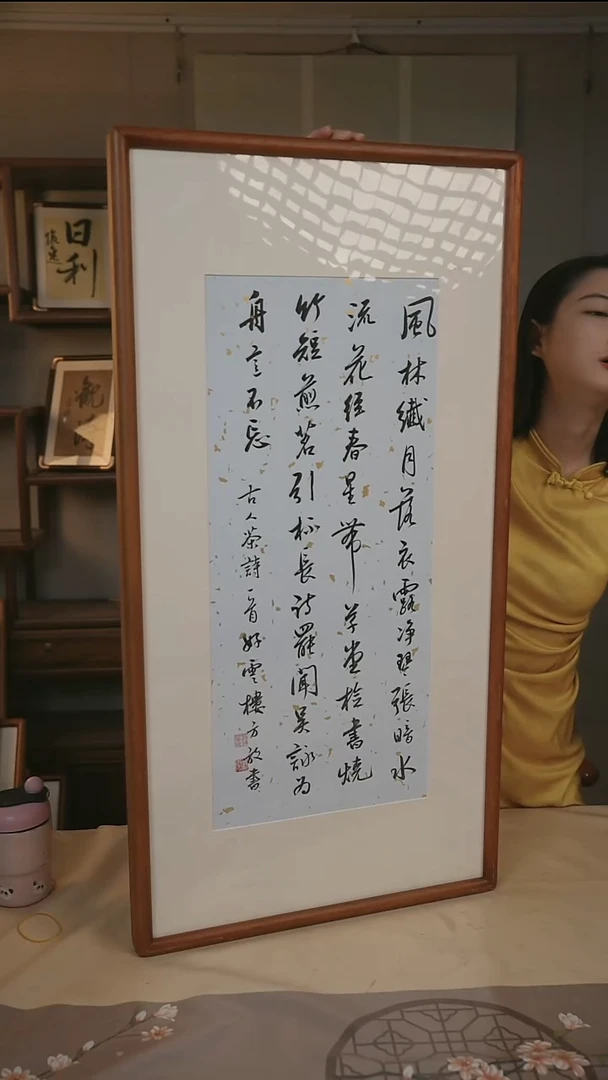 風林纖月落衣露净琴張暗水
流花徑春星帶草堂检書燒
竹短煎茗引杯長詩罷聞吴詠
舟意不忘 古人茶詩一首 好雲樓方放書
日利